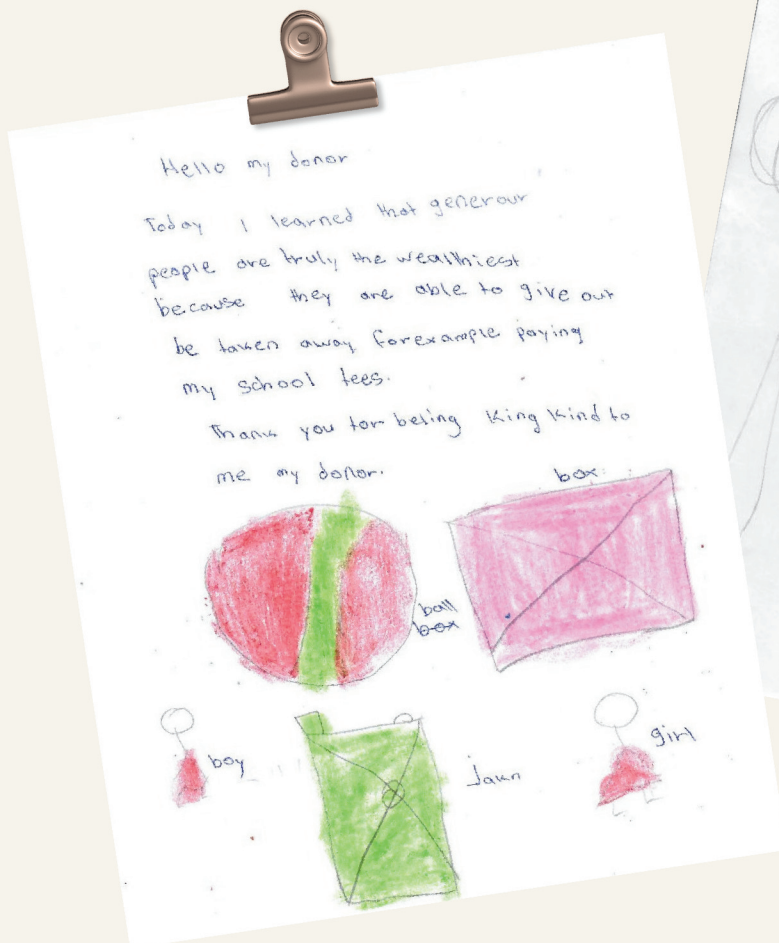 Hello my donor
Today I learned that generour
people are truly the wealthiest
because they are able to give out
be taken away forexample paying
my school fees.
Thank you for being King Kind to
me my donor.
box
ball
box
boy
girl